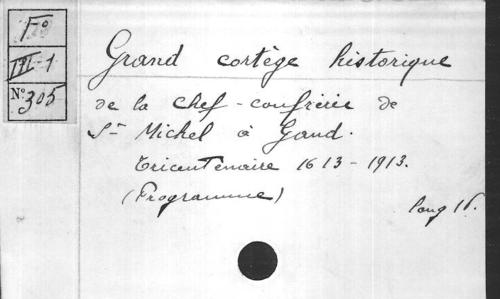 Fº
III-1
Nº 305
Grand cortège historique
de la Chef-confrérie de
St Michel à Gand.
Tricentenaire 1613-1913.
(Programme)